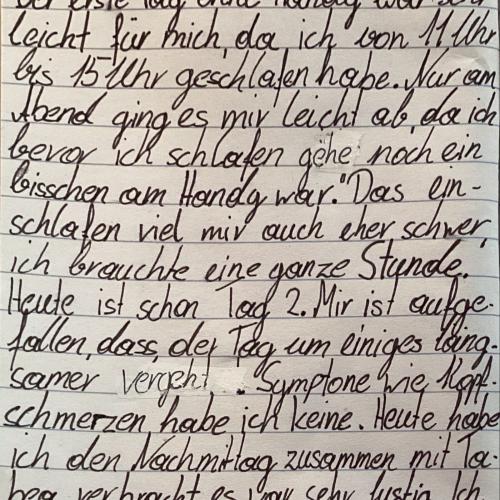 Der erste Tag ohne Handy war sehr
leicht für mich, da ich von 11 Uhr
bis 15 Uhr geschlafen habe. Nur am
Abend ging es mir leicht ab, da ich
bevor ich schlafen gehe noch ein
bisschen am Handy war. Das ein-
schlafen viel mir auch eher schwer,
ich brauchte eine ganze Stunde.
Heute ist schon Tag 2. Mir ist aufge-
fallen, dass, der Tag um einiges läng-
samer vergeht. Symptone wie Kopf-
schmerzen habe ich keine. Heute habe
ich den Nachmittag zusammen mit Ta-
bea verbracht es war sehr lustig. Ich